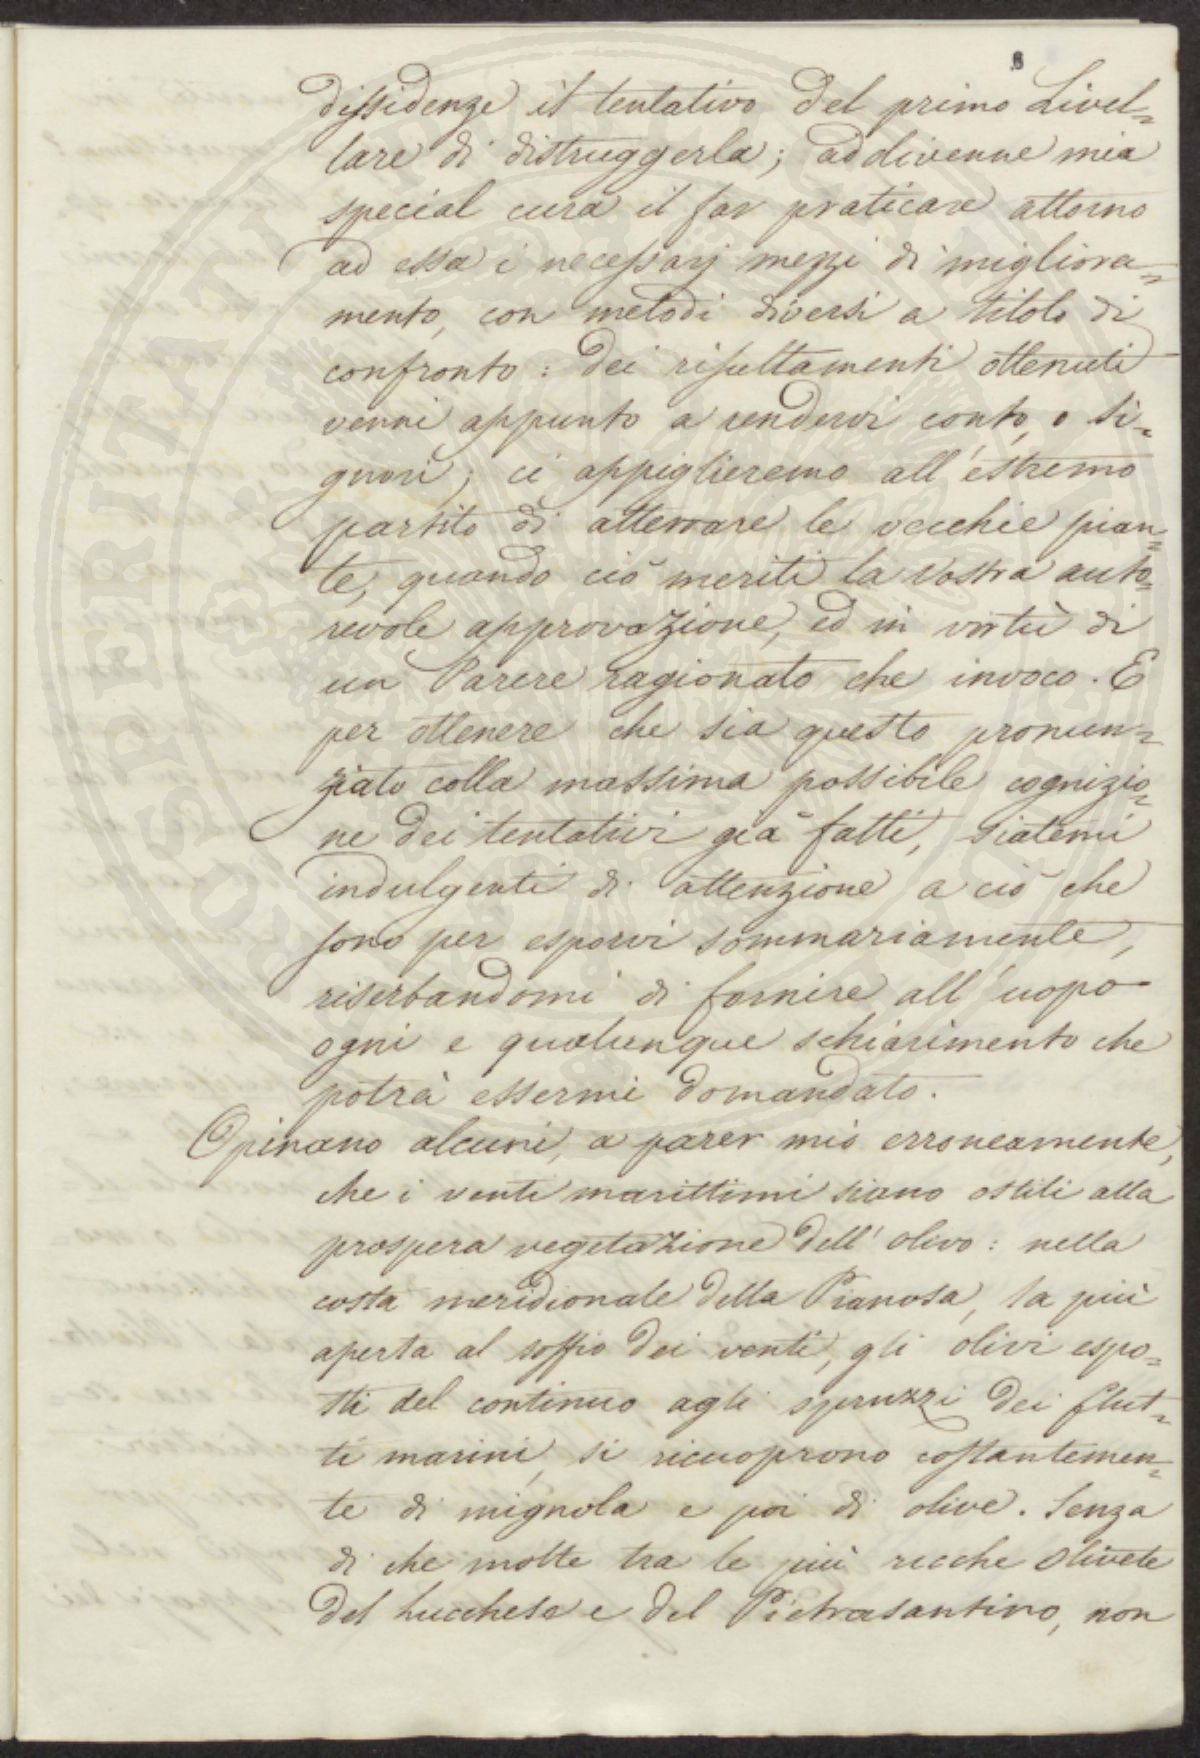 8
dissidenze il tentativo del primo Livel=
lare di distruggerla; addivenne mia
special cura il far praticare attorno
ad essa i necessarj mezzi di migliora=
mento, con metodi diversi a titolo di
confronto: dei risultamenti ottenuti
venni appunto a rendervi conto, o Si=
gnori; ci appiglieremo all'estremo
partito di atterrare le vecchie pian=
te, quando ciò meriti la vostra auto=
revole approvazione, ed in virtù di
un Parere ragionato che invoco. E
per ottenere che sia questo pronun=
ziato colla massima possibile cognizio=
ne dei tentativi già fatti, siatemi
indulgenti di attenzione a ciò che
sono per esporvi sommariamente,
riserbandomi di fornire all'uopo
ogni e qualunque schiarimento che
potrà essermi domandato.
Opinano alcuni, a parer mio erroneamente,
che i venti marittimi siano ostili alla
prospera vegetazione dell'olivo: nella
costa meridionale della Pianosa, la più
aperta al soffio dei venti, gli olivi espo=
sti del continuo agli spruzzi dei flut=
ti marini, si ricuoprono costantemen=
te di mignola e poi di olive. Senza
di che molte tra le più ricche olivete
del Lucchese e del Pietrasantino, non
PROSPERITATI PUBLICAE